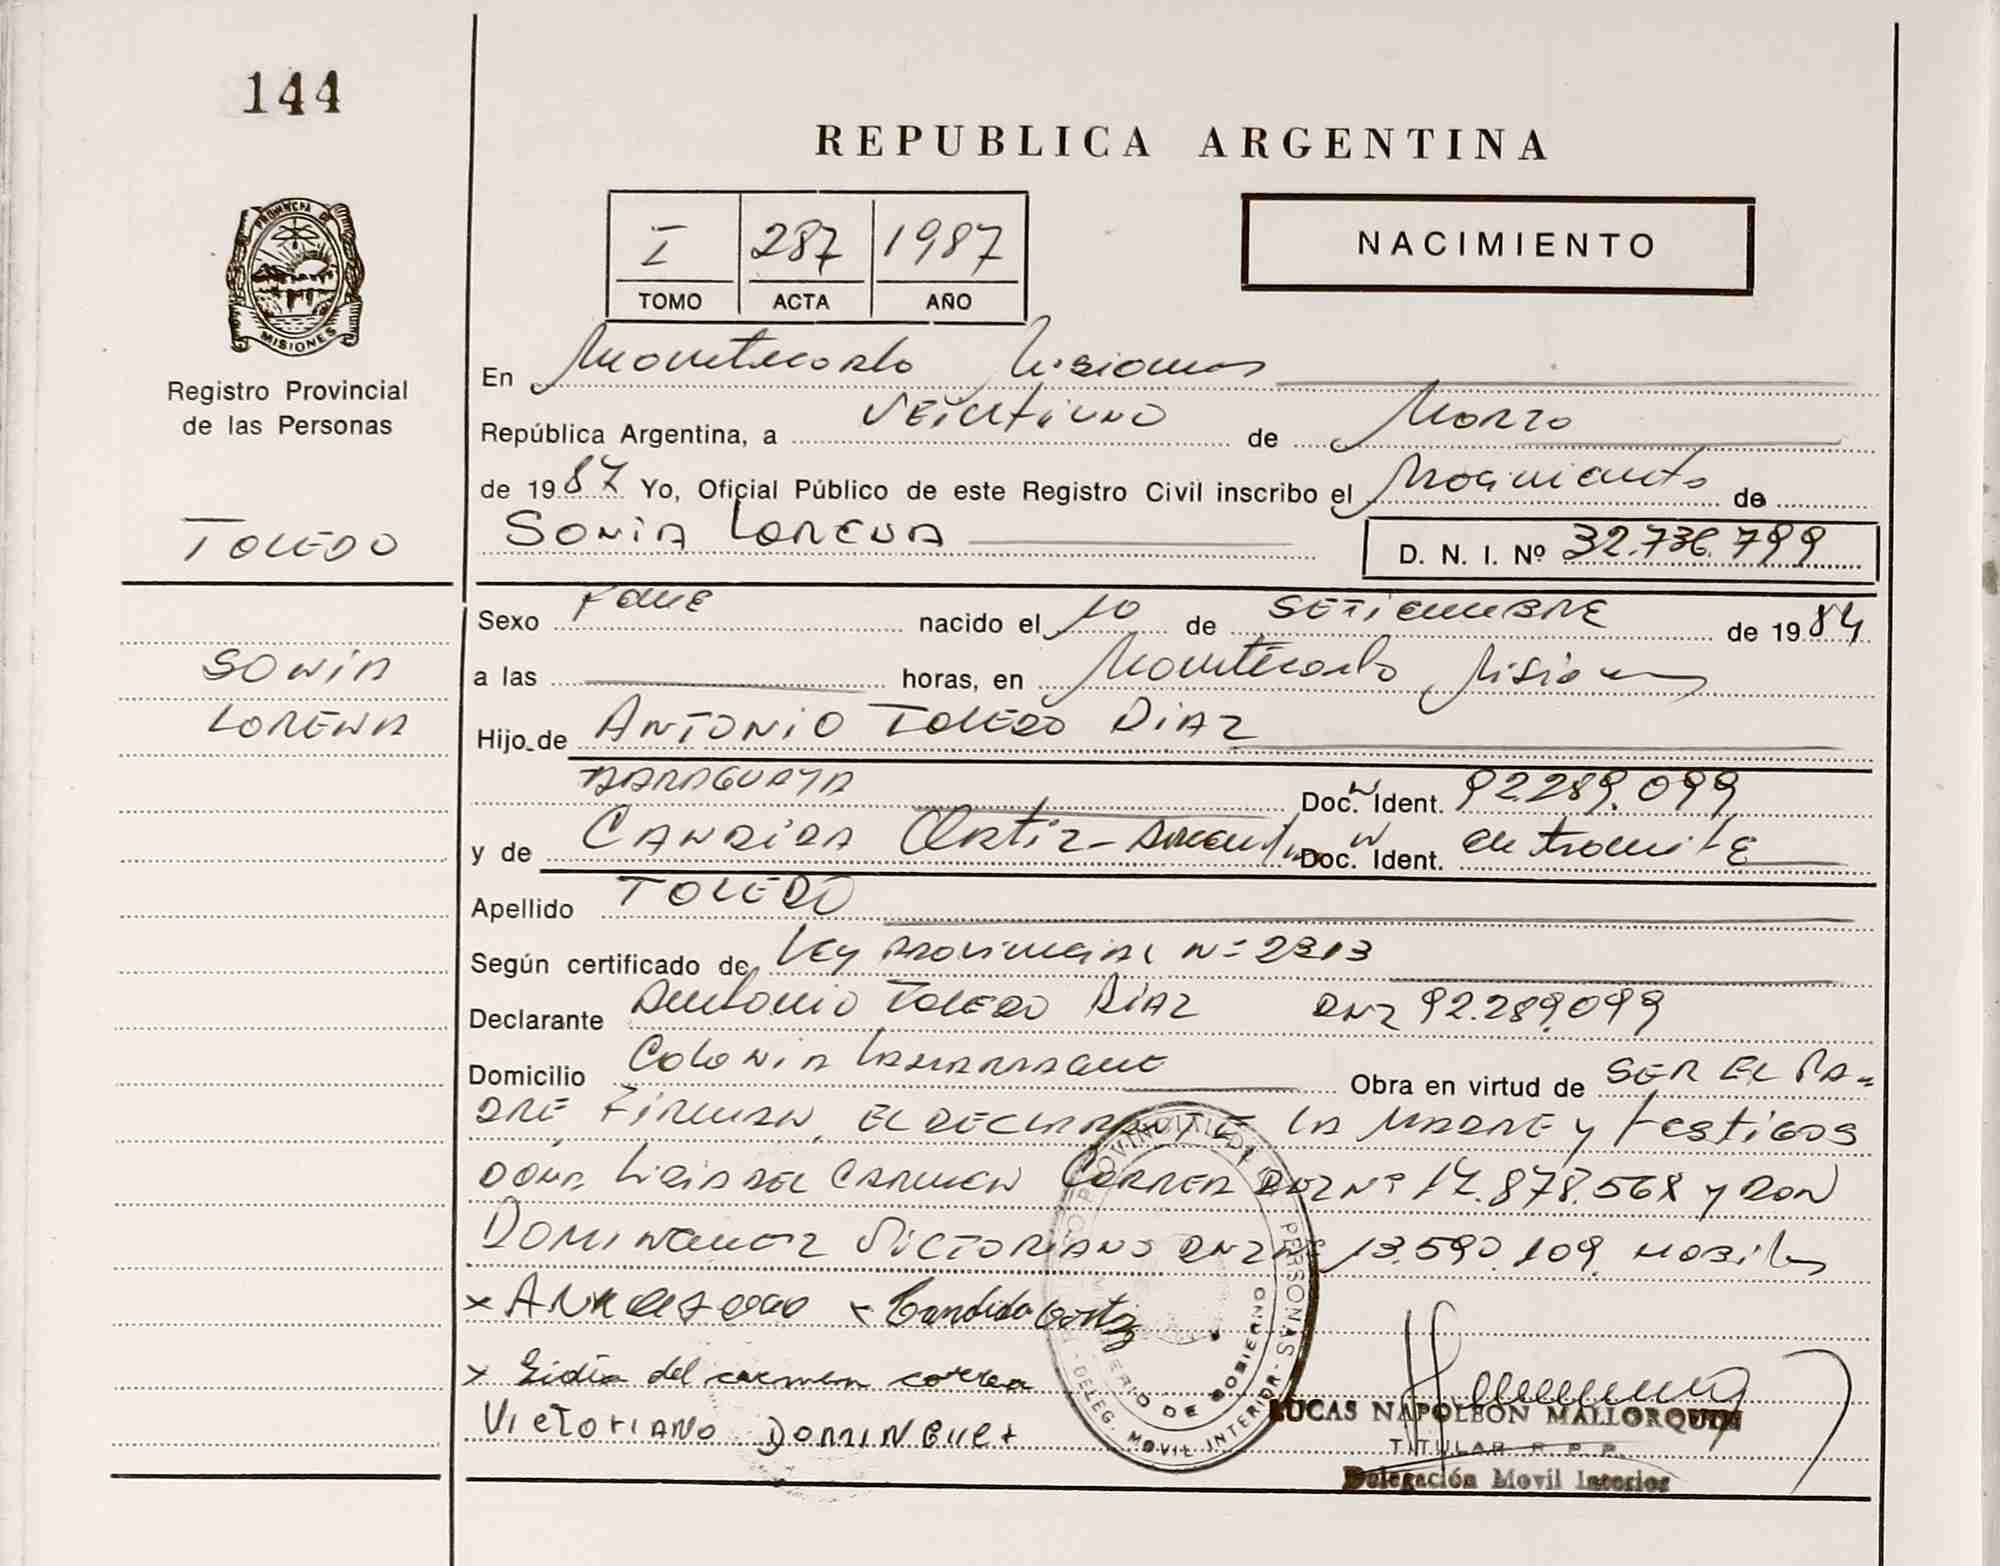 144
REPUBLICA ARGENTINA
I 287 1987
TOMO ACTA AÑO
NACIMIENTO
PROVINCIA DE
MISIONES
Registro Provincial
de las Personas
En Montecarlo Misiones
República Argentina, a veintiuno de Marzo
de 1987 Yo, Oficial Público de este Registro Civil inscribo el Nacimiento de
TOLEDO
SONIA LORENA D. N. I. Nº 32.736.799
SONIA
LORENA
Sexo Feme nacido el 10 de SETIEMBRE de 1984
a las horas, en Montecarlo Misiones
Hijo de ANTONIO TOLEDO DIAZ
PARAGUAYA Doc. Ident. 92.289.099
y de CANDIDA Ortiz- Doc. Ident. en tramite
Apellido TOLEDO
Según certificado de Ley Provincial Nº 2313
Declarante Antonio TOLEDO DIAZ DNI 92.289.099
Domicilio Colonia Obra en virtud de SER EL PA-
DRE, FIRMAN, EL DECLARANTE LA MADRE y testigos
DOÑA LIDIA DEL CARMEN CORREA DNI Nº 17.878.568 y DON
DOMINGUEZ VICTORIANO DNI Nº 13.590.109
x x Candida Ortiz
x Lidia del carmen correa
VICTORIANO DOMINGUEZ
PERSONAS
MINISTERIO DE GOBIERNO
DELEG. MOVIL INTERIOR
LUCAS NAPOLEON MALLORQUIN
TITULAR R. P. P.
Delegación Movil Interior